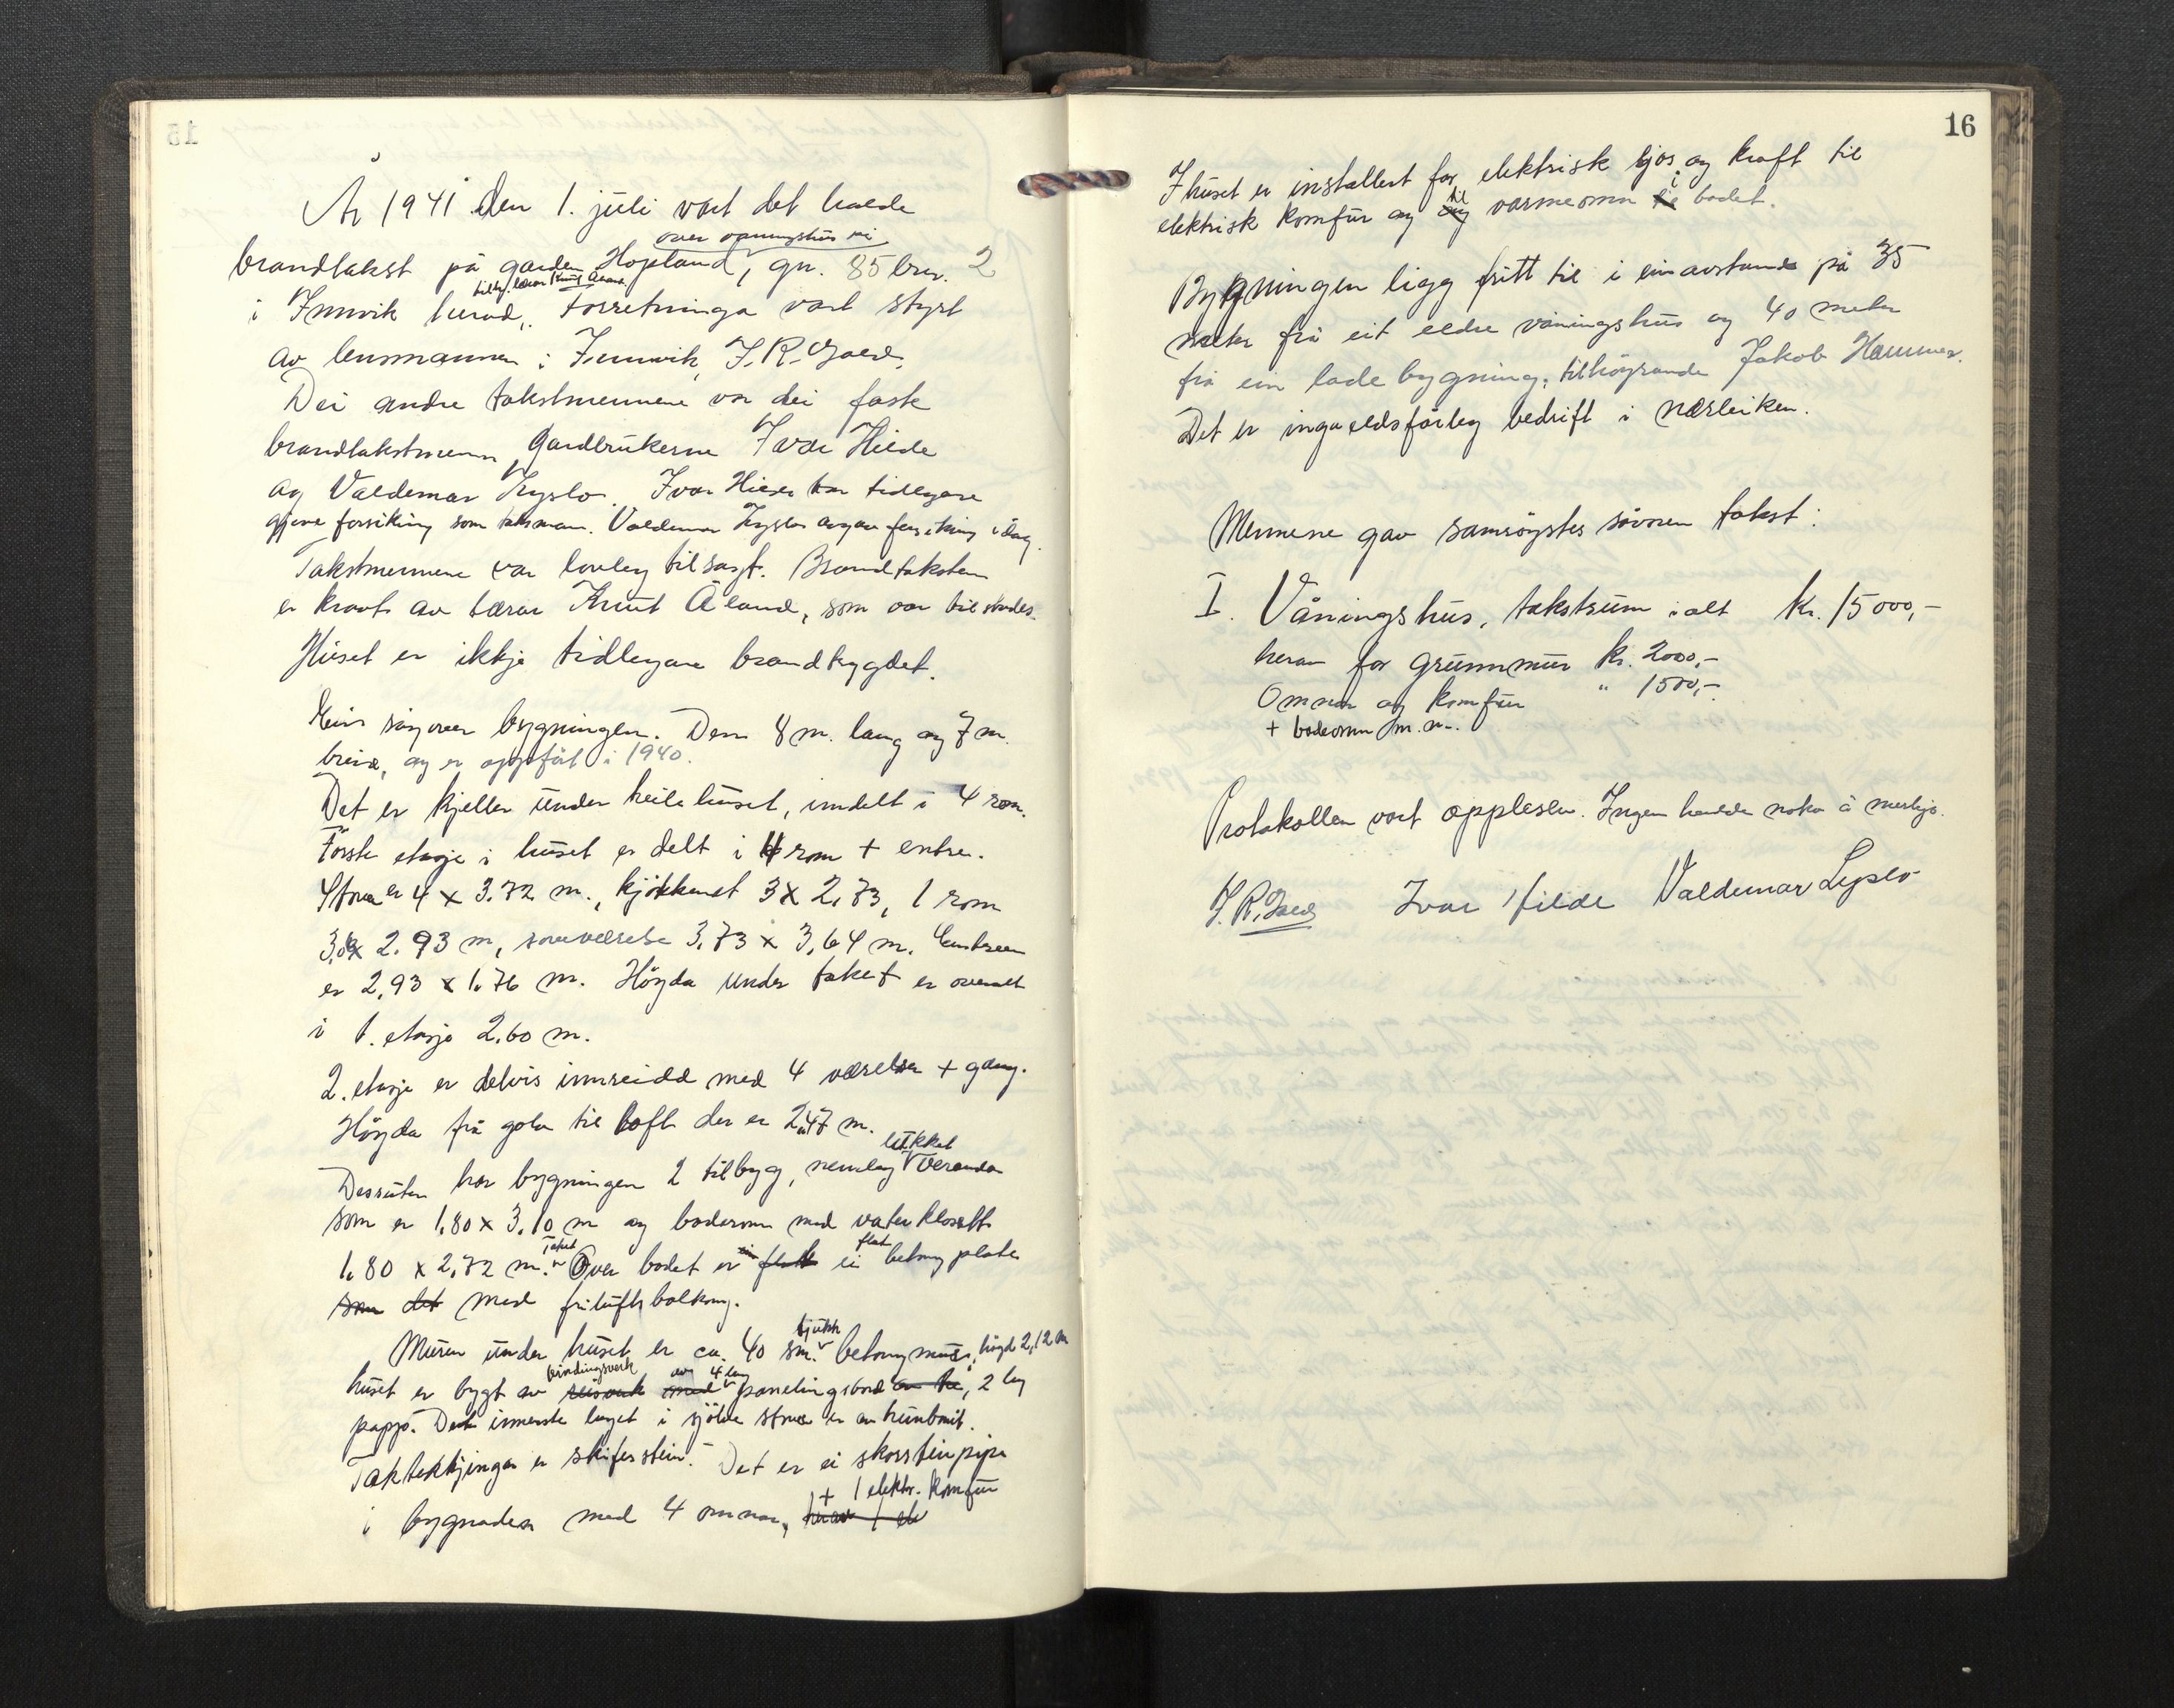 År 1941 den 1. juli vart det halde
over våningshus på
brandtakst på garden Hopland, gn. 85 brn. 2
tilh. lærar Knut Åland
i Innvik herad. Forretninga vart styrt
av lensmannen i Innvik, J. R.
Dei andre takstmennene var dei faste
brandtakstmenn gardbrukerne Ivar Hilde
og Valdemar Lyslo. Ivar Hilde har tidlegare
gjeve forsikring som takstmann. Valdemar Lyslo avgav forsikring i dag.
Takstmennene var lovleg tilsagt. Brandtaksten
er kravt av lærar Knut Åland, som var tilstades.
Huset er ikkje tidlegare brandtrygdet.
Ein såg over bygningen. Den 8 m. lang og 7 m.
breid, og er oppført i 1940.
Det er kjeller under heile huset, inndelt i 4 rom.
Første etasje i huset er delt i 4 rom + entre.
Stova er 4 x 3.72 m., kjökkenet 3 x 2,73, 1 rom
2.93 m, soveværelse 3,73 x 3,64 m. Entreen
er 2,93 x 1.76 m. Höyda under taket er overalt
i 1. etasje 2.60 m.
2. etasje er delvis innreidd med 4 værelser + gang.
Höyda frå golv til loft der er 2,47 m.
lukket
Dessuten har bygningen 2 tilbygg, nemleg veranda
som er 1,80 x 3,10 m og baderom med vater klosett
Taket flat
1,80 x 2,72 m. Over badet er ei betong plate
som det med friluftsbalkong.
tjukk
Muren under huset er ca. 40 sm. betongmur, högd 2,12 m
bindingsverk av 4 lag
huset er bygt av reisverk med panelingsbord av, 2 lag
papp. Det innerste laget i sjölve stova er av huntonit.
Taktekkjinga er skiferstein. Det er ei skorsteinpipe
+ 1 elektr. komfur
i bygnaden med 4 omnar, herav 1 el
16
I huset er installert for elektrisk ljos og kraft til
til i
elektrisk komfur og og varmeomn badet.
Bygningen ligg fritt til i ein avstand på 35
meter frå eit eldre våningshus og 40 meter
frå ein lade bygning, tilhöyrande Jakob Hammer.
Det er inga eldsfårleg bedrift i nærleiken.
Mennene gav samröystes såvoren takst:
I. Våningshus, takstsum i alt kr. 15000,-
herav for grunnmur kr. 2000,-
Omnar og komfur " 1500,-
+ badeomn m.m.
Protokollen vart opplesen. Ingen hadde noko å merkje.
J. R. Ivar Hilde Valdemar Lyslo